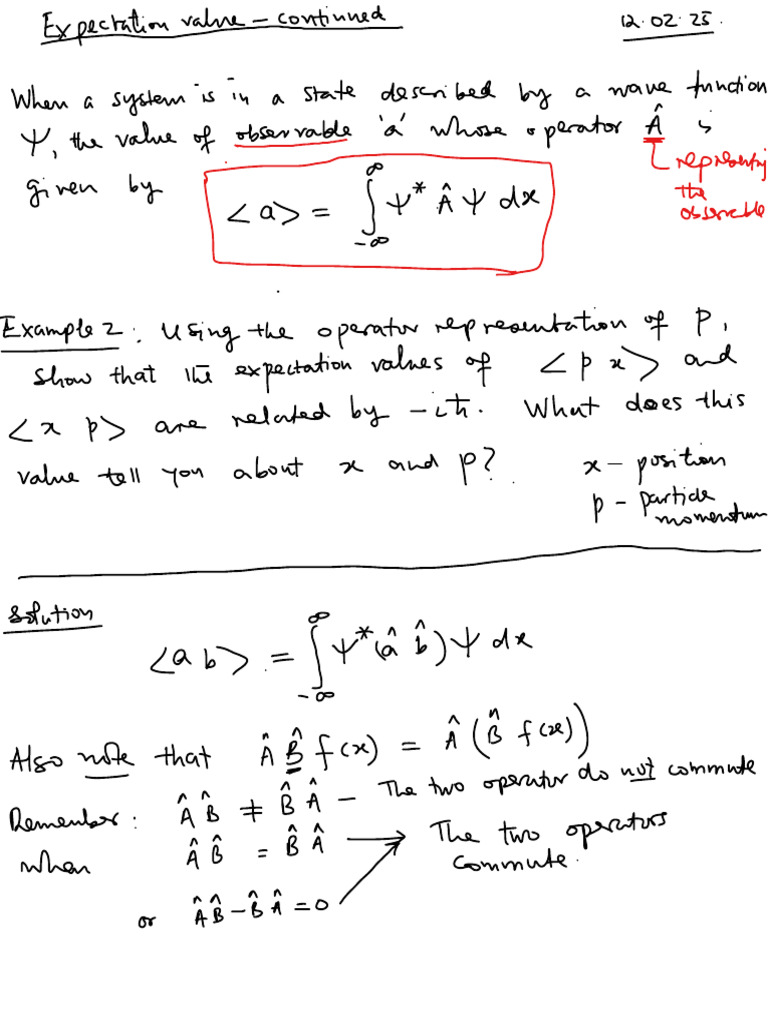 Expectation value – continued
12.02.25.
When a system is in a state described by a wave function
Ψ, the value of observable 'a' whose operator Â is
representing
the
observable
given by
<a> = ∫_{-∞}^{∞} Ψ* Â Ψ dx
Example 2: Using the operator representation of P,
show that the expectation values of <p x> and
<x p> are related by –iħ. What does this
value tell you about x and p?
x – position
p – particle
momentum
Solution
<a b> = ∫_{-∞}^{∞} Ψ* (â b̂) Ψ dx
Also note that Â B̂ f(x) = Â (B̂ f(x))
Remember: Â B̂ ≠ B̂ Â – The two operator do not commute
when Â B̂ = B̂ Â → The two operators
commute.
or Â B̂ – B̂ Â = 0